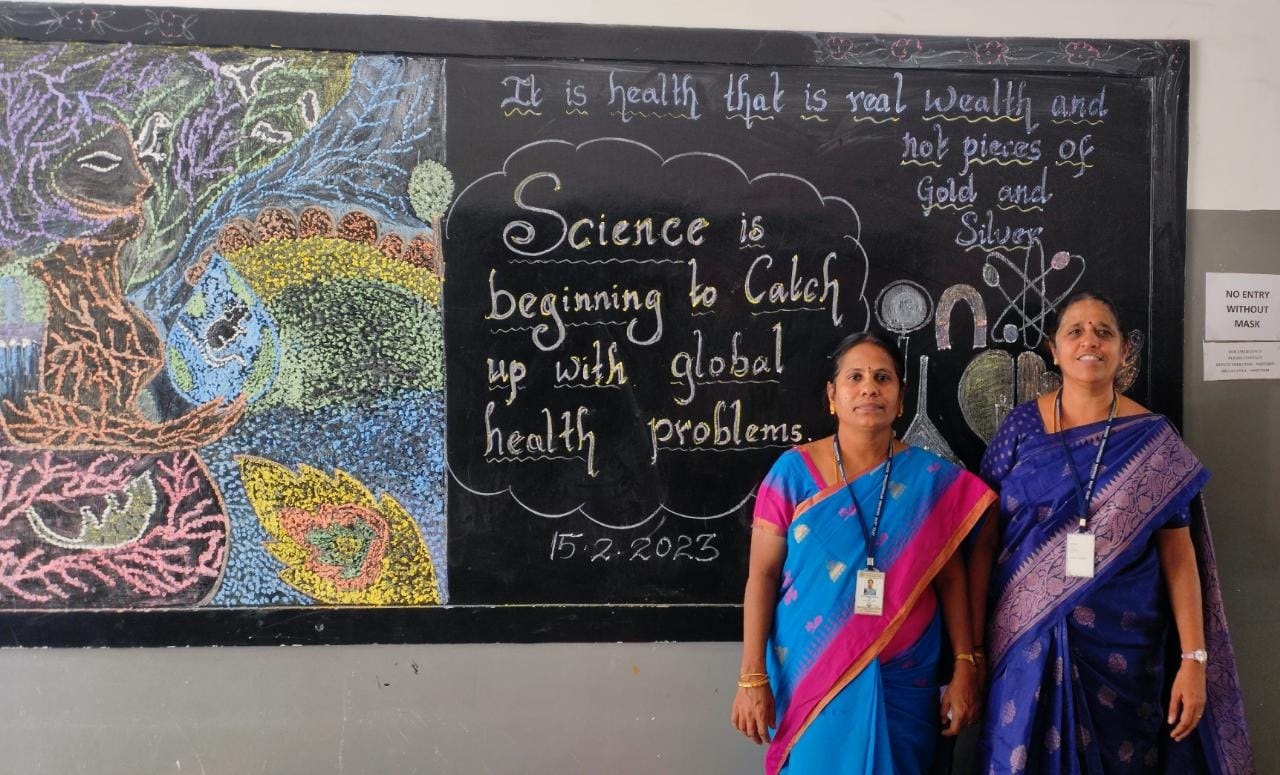 It is health that is real wealth and
not pieces of
Gold and
Silver
Science is
beginning to Catch
up with global
health problems.
15.2.2023
NO ENTRY
WITHOUT
MASK